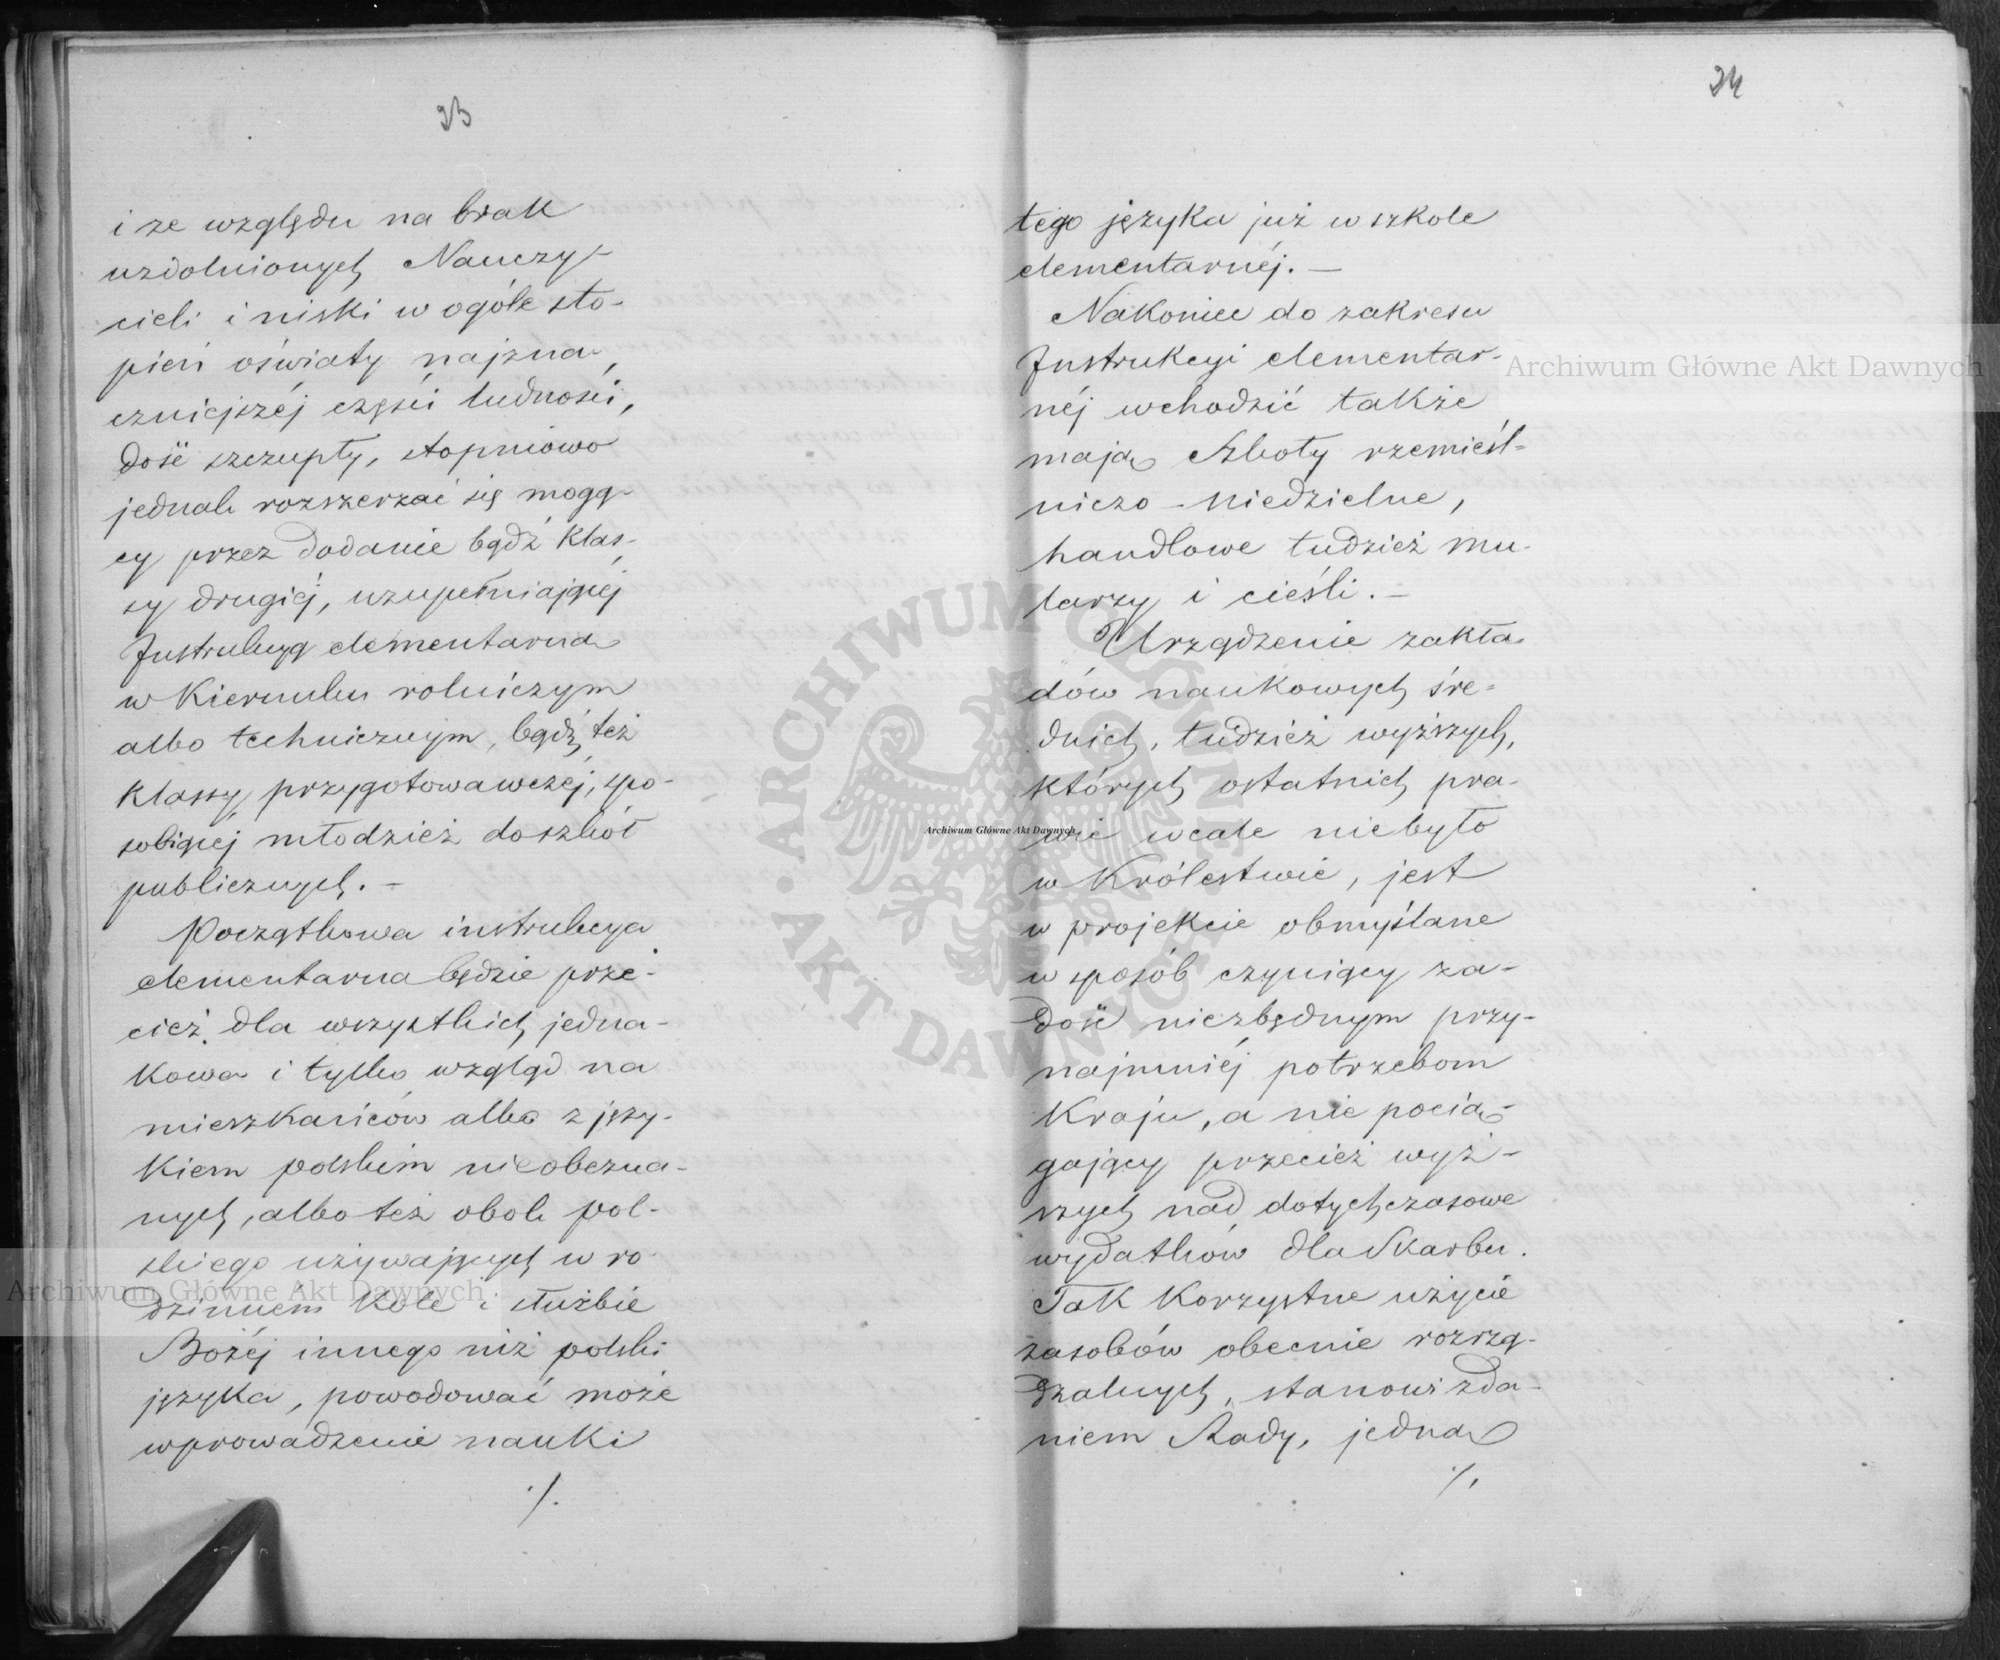 23
i ze względu na brak
uzdolnionych Nauczy-
cieli i niski w ogóle sto-
pień oświaty najzna-
czniejszéj części ludności,
dość szczupły, stopniowo
jednak rozszerzać się mogą-
cy przez dodanie bądź klas-
sy drugiéj, uzupełniającéj
Instrukcyą elementarną
w kierunku rolniczym
albo technicznym, bądź też
klassy przygotowawczéj, spo-
sobiącéj młodzież do szkół
publicznych. –
Początkowa instrukcya
elementarna będzie prze-
cież dla wszystkich jedna-
kowa i tylko wzgląd na
mieszkańców albo z języ-
kiem polskim nieobezna-
nych, albo też obok pol-
skiego używających w ro-
dzinnem kole i służbie
Bożéj innego niż polski
języka, powodować może
wprowadzenie nauki
./.
24
tego języka już w szkole
elementarnéj. –
Nakoniec do zakresu
Instrukcyi elementar-
néj wchodzić także
mają Szkoły rzemieśl-
niczo-niedzielne,
handlowe tudzież mu-
larzy i cieśli. –
Urządzenie zakła-
dów naukowych śre-
dnich, tudzież wyższych,
których ostatnich pra-
wie wcale niebyło
w Królestwie, jest
w projekcie obmyślane
w sposób czyniący za-
dość niezbędnym przy-
najmniéj potrzebom
Kraju, a nie pocią-
gający przecież wyż-
szych nad dotychczasowe
wydatków dla Skarbu.
Tak korzystne użycie
zasobów obecnie rozrzą-
dzalnych, stanowi zda-
niem Rady, jedną
./.
Archiwum Główne Akt Dawnych
Archiwum Główne Akt Dawnych
Archiwum Główne Akt Dawnych
ARCHIWUM GŁÓWNE • AKT DAWNYCH •